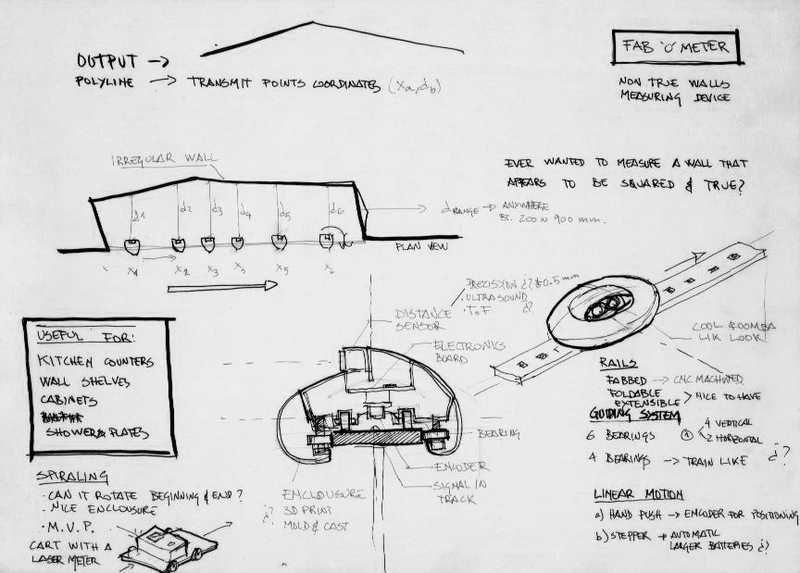 OUTPUT →
POLYLINE → TRANSMIT POINTS COORDINATES (Xa, db)
FAB 'O' METER
NON TRUE WALLS
MEASURING DEVICE
EVER WANTED TO MEASURE A WALL THAT
APPEARS TO BE SQUARED & TRUE?
IRREGULAR WALL
d1 d2 d3 d4 d5 d6
dRANGE → ANYWHERE
BT. 200 N 900 mm.
PLAN VIEW
X1 X2 X3
X5
USEFUL FOR:
KITCHEN COUNTERS
WALL SHELVES
CABINETS
SHOWER PLATES
PRECISION ¿? ±0.5 mm
· ULTRASOUND
· T.o.F ¿?
DISTANCE
SENSOR
ELECTRONICS
BOARD
BEARING
ENCODER
SIGNAL IN
TRACK
ENCLOUSURE
¿? 3D PRINT
MOLD & CAST
COOL ROOMBA
LIK LOOK!
RAILS
FABBED → CNC MACHINED
FOLDABLE
EXTENSIBLE > NICE TO HAVE
GUIDING SYSTEM
6 BEARINGS 4 VERTICAL
2 HORIZONTAL
4 BEARINGS → TRAIN LIKE ¿?
LINEAR MOTION
a) HAND PUSH → ENCODER FOR POSITIONING
b) STEPPER → AUTOMATIC
LARGER BATTERIES ¿?
SPIRALING
· CAN IT ROTATE BEGINNING & END?
· NICE ENCLOSURE
· M.V.P.
CART WITH A
LASER METER